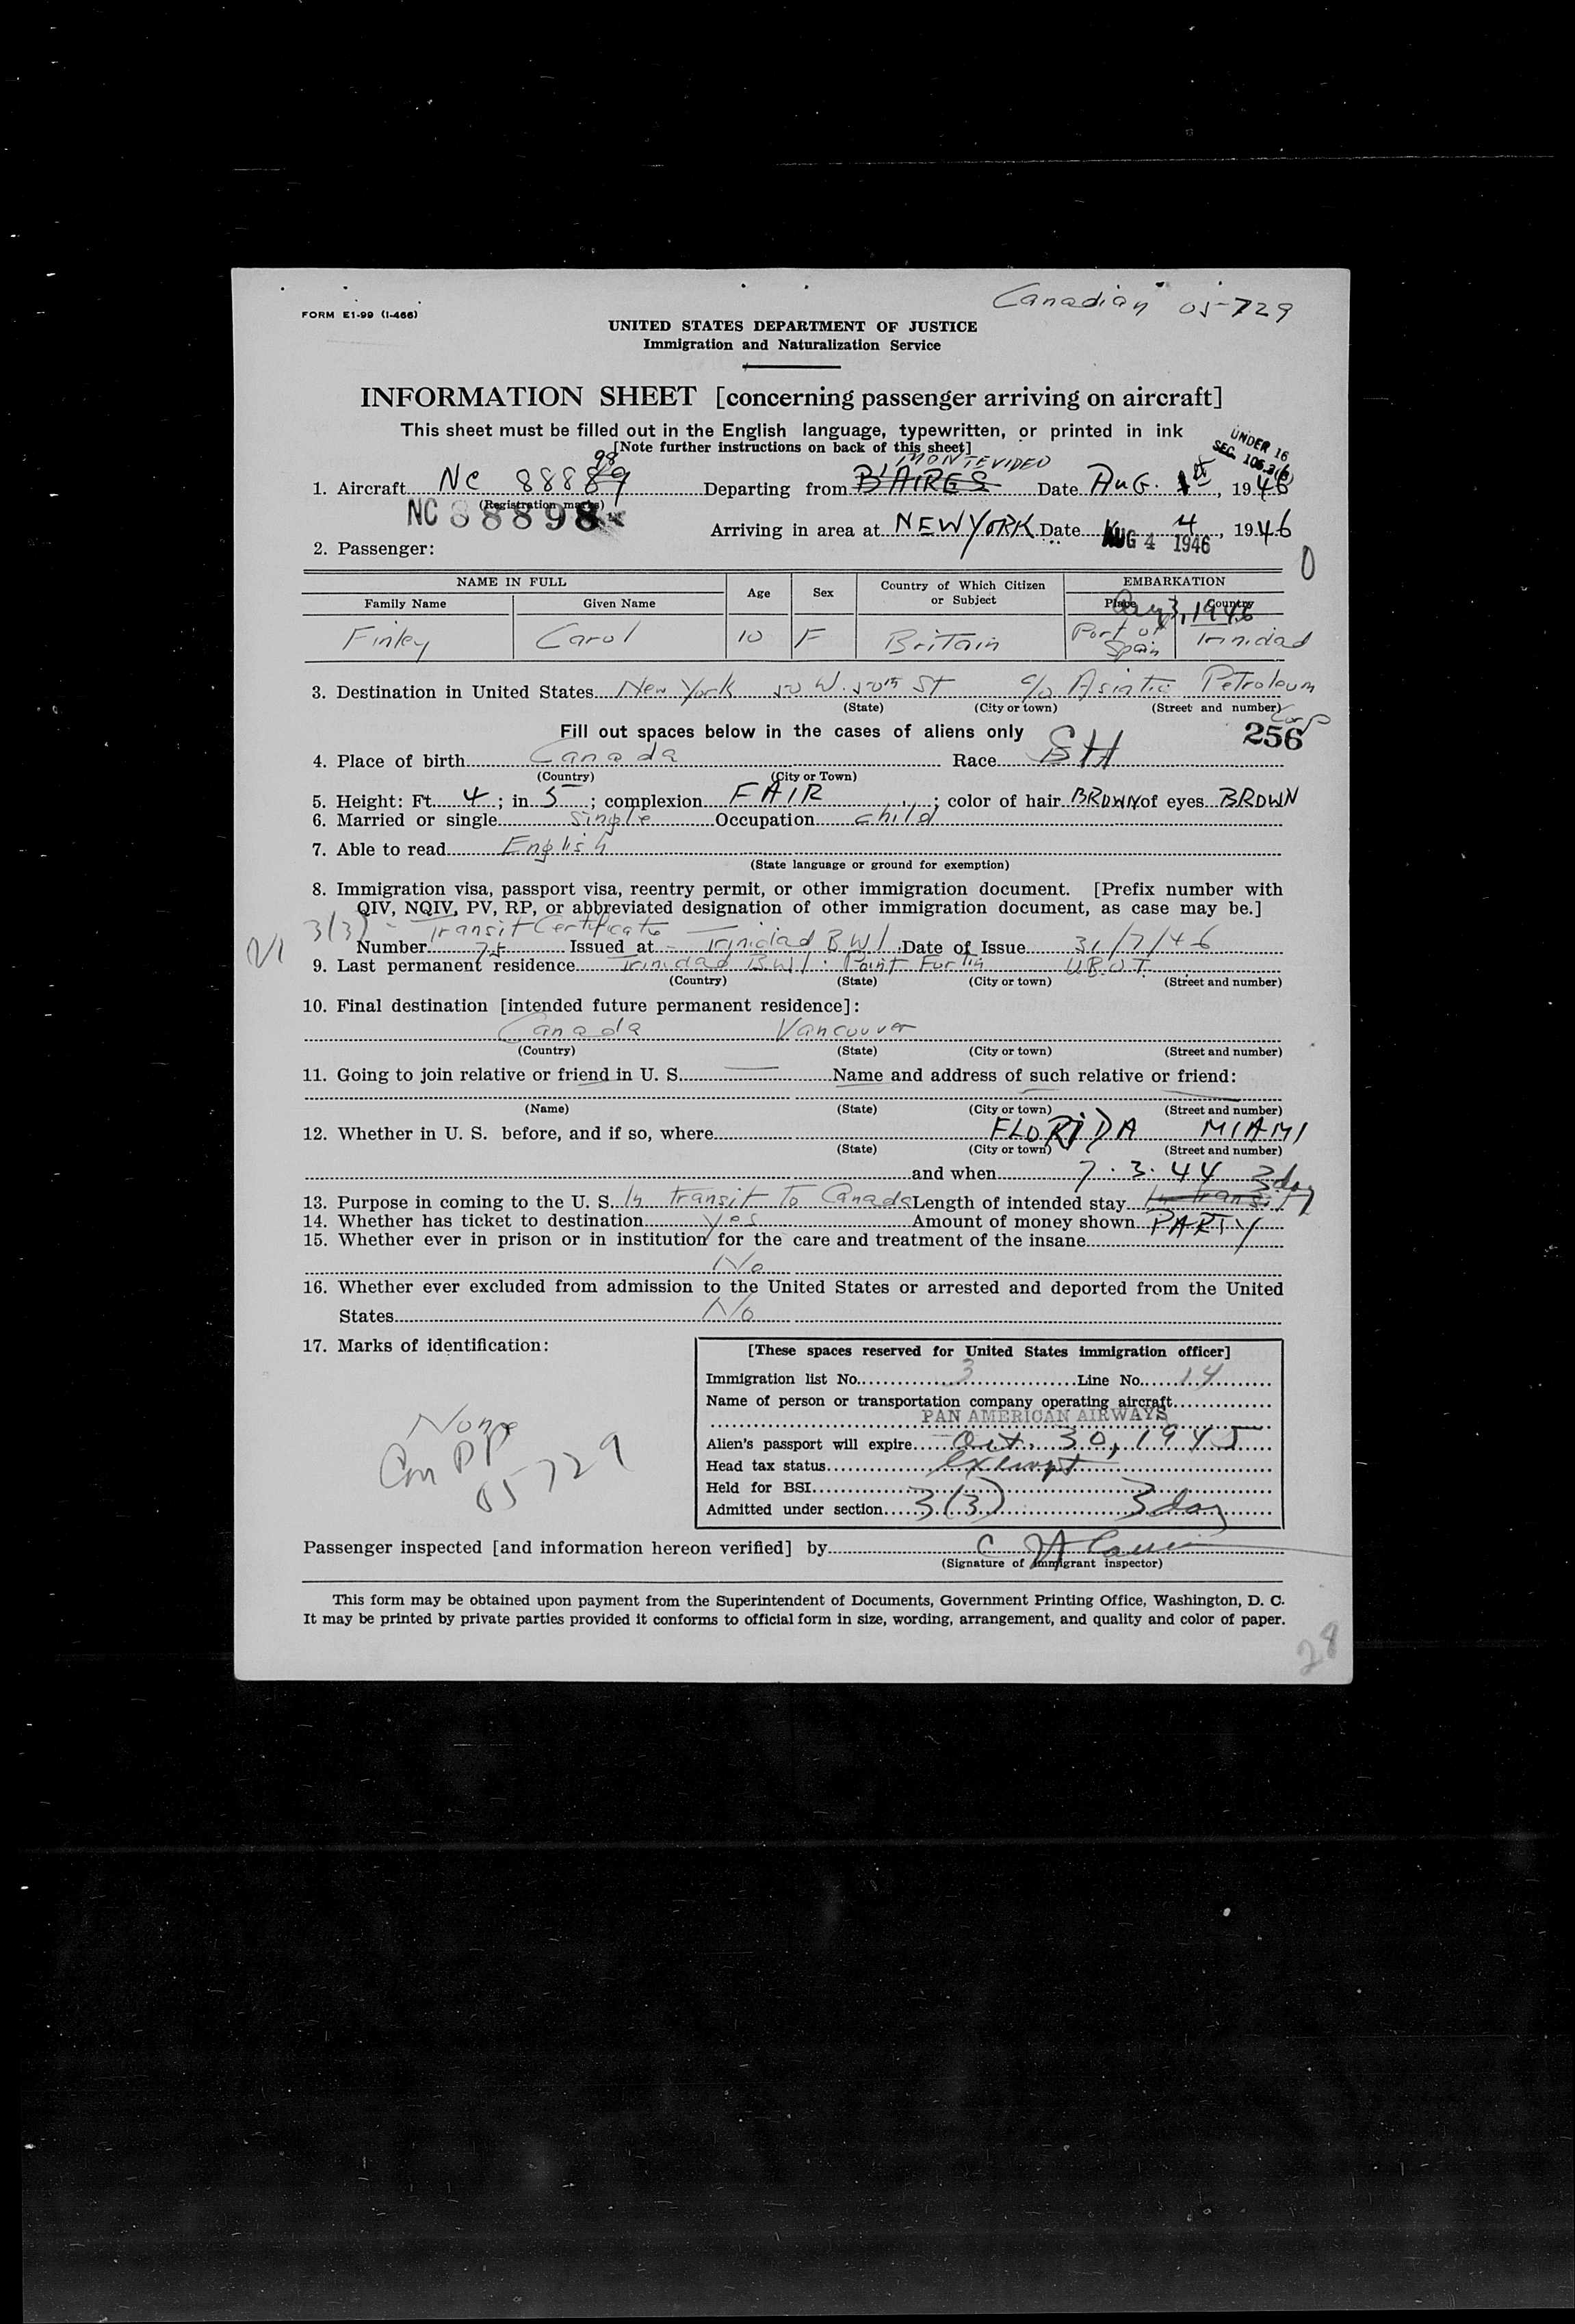 Canadian 05-729
FORM E1-99 (I-466)
UNITED STATES DEPARTMENT OF JUSTICE
Immigration and Naturalization Service
INFORMATION SHEET [concerning passenger arriving on aircraft]
This sheet must be filled out in the English language, typewritten, or printed in ink
[Note further instructions on back of this sheet]
UNDER 16
SEC. 105.3(
98 MONTEVIDEO
1. Aircraft NC 88889 Departing from B'AIRES Date AUG. 1st, 1946
(Registration marks)
NC 88898
Arriving in area at NEW YORK Date AUG 4 1946 4, 1946
2. Passenger: 0
NAME IN FULL Age Sex Country of Which Citizen or Subject EMBARKATION
Family Name Given Name Place Country
Aug 3, 1946
Finley Carol 10 F Britain Port of Spain Trinidad
3. Destination in United States New York 50 W. 50th St c/o Asiatic Petroleum Corp
(State) (City or town) (Street and number)
Fill out spaces below in the cases of aliens only 256
4. Place of birth Canada Race
(Country) (City or Town)
5. Height: Ft. 4; in 5; complexion FAIR; color of hair BROWN of eyes BROWN
6. Married or single Single Occupation child
7. Able to read English
(State language or ground for exemption)
8. Immigration visa, passport visa, reentry permit, or other immigration document. [Prefix number with
QIV, NQIV, PV, RP, or abbreviated designation of other immigration document, as case may be.]
3(3) - Transit Certificate
Number 75 Issued at Trinidad BWI Date of Issue 31/7/46
9. Last permanent residence Trinidad B.W.I. Point Fortin U.B.O.T.
(Country) (State) (City or town) (Street and number)
10. Final destination [intended future permanent residence]:
Canada Vancouver
(Country) (State) (City or town) (Street and number)
11. Going to join relative or friend in U. S. — Name and address of such relative or friend:
(Name) (State) (City or town) (Street and number)
12. Whether in U. S. before, and if so, where FLORIDA MIAMI
(State) (City or town) (Street and number)
and when 7.3.44
3 day
13. Purpose in coming to the U. S. In transit to Canada Length of intended stay In transit
14. Whether has ticket to destination yes Amount of money shown PARTY
15. Whether ever in prison or in institution for the care and treatment of the insane
No
16. Whether ever excluded from admission to the United States or arrested and deported from the United
States No
17. Marks of identification:
None
Can PP
05729
[These spaces reserved for United States immigration officer]
Immigration list No. 3 Line No. 14
Name of person or transportation company operating aircraft
PAN AMERICAN AIRWAYS
Alien's passport will expire Oct. 30, 1945
Head tax status exempt
Held for BSI
Admitted under section 3(3) 3 day
Passenger inspected [and information hereon verified] by
(Signature of immigrant inspector)
This form may be obtained upon payment from the Superintendent of Documents, Government Printing Office, Washington, D. C.
It may be printed by private parties provided it conforms to official form in size, wording, arrangement, and quality and color of paper.
28